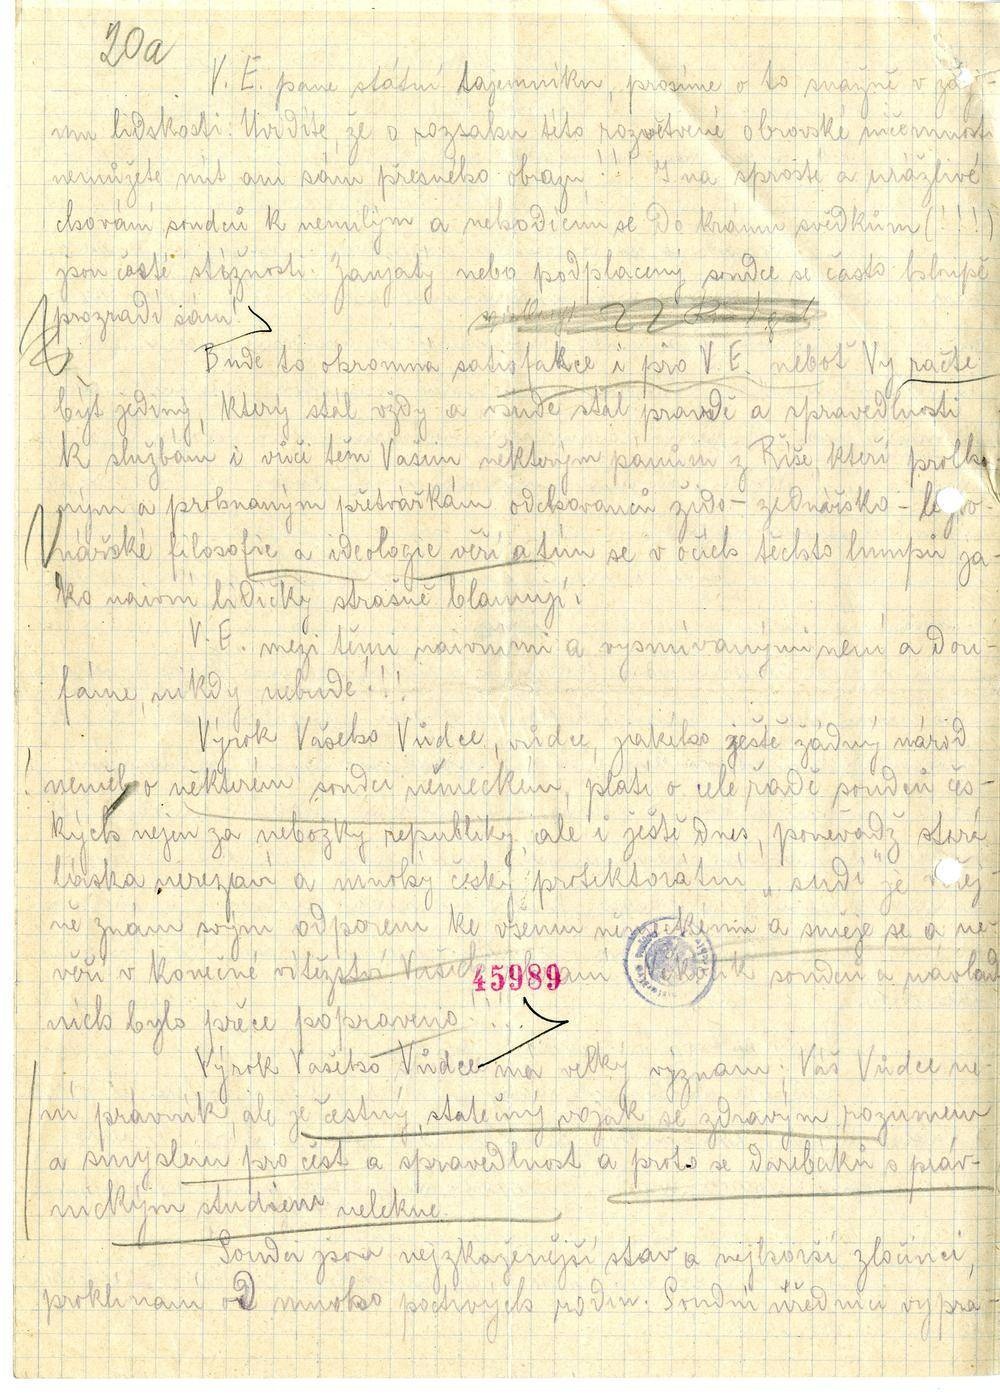 20a
V. E. pane státní tajemníku, prosíme o to snažně v zá-
jmu lidskosti. Uvidíte, že o rozsahu této rozvětvené obrovské ničemnosti
nemůžete mít ani sám přesného obrazu!!! I na sprosté a urážlivé
chování soudců k nemilým a nehodícím se do krámu svědkům (!!!)
jsou časté stížnosti. Zaujatý nebo podplacený soudce se často hloupě
prozradí sám!
Bude to ohromná satisfakce i pro V. E. neboť Vy račte
být jediný, který stál vždy a všude stál pravdě a spravedlnosti
k službám i vůči těm Vašim některým pánům z Říše, kteří prolha-
ným a prohnaným přetvářkám odchovanců žido-zednářsko-legio-
nářské filosofie a ideologie věří a tím se v očích těchto lumpů ja-
ko naivní lidičky strašně blamují!
V. E. mezi těmi naivními a vysmívanými není a dou-
fáme, nikdy nebude!!!
Výrok Vašeho Vůdce, vůdce, jakého ještě žádný národ
neměl o některém soudci německém, platí o celé řadě soudců čes-
kých nejen za nebožky republiky, ale i ještě dnes, poněvadž stará
láska nerezaví a mnohý český protektorátní „sudí" je veřej-
ně znám svým odporem ke všemu německému a směje se a ne-
věří v konečné vítězství Vašich zbraní. Kolik soudců a návlad-
ních bylo přece popraveno!...
45989
Výrok Vašeho Vůdce má velký význam; Váš Vůdce ne-
ní právník, ale je čestný, statečný voják se zdravým rozumem
a smyslem pro čest a spravedlnost a proto se darebáků s práv-
nickým studiem nelekne.
Soudci jsou nejzkaženější stav a nejhorší zločinci,
proklínaní od mnoho poctivých rodin. Soudní úředníci vyprá-